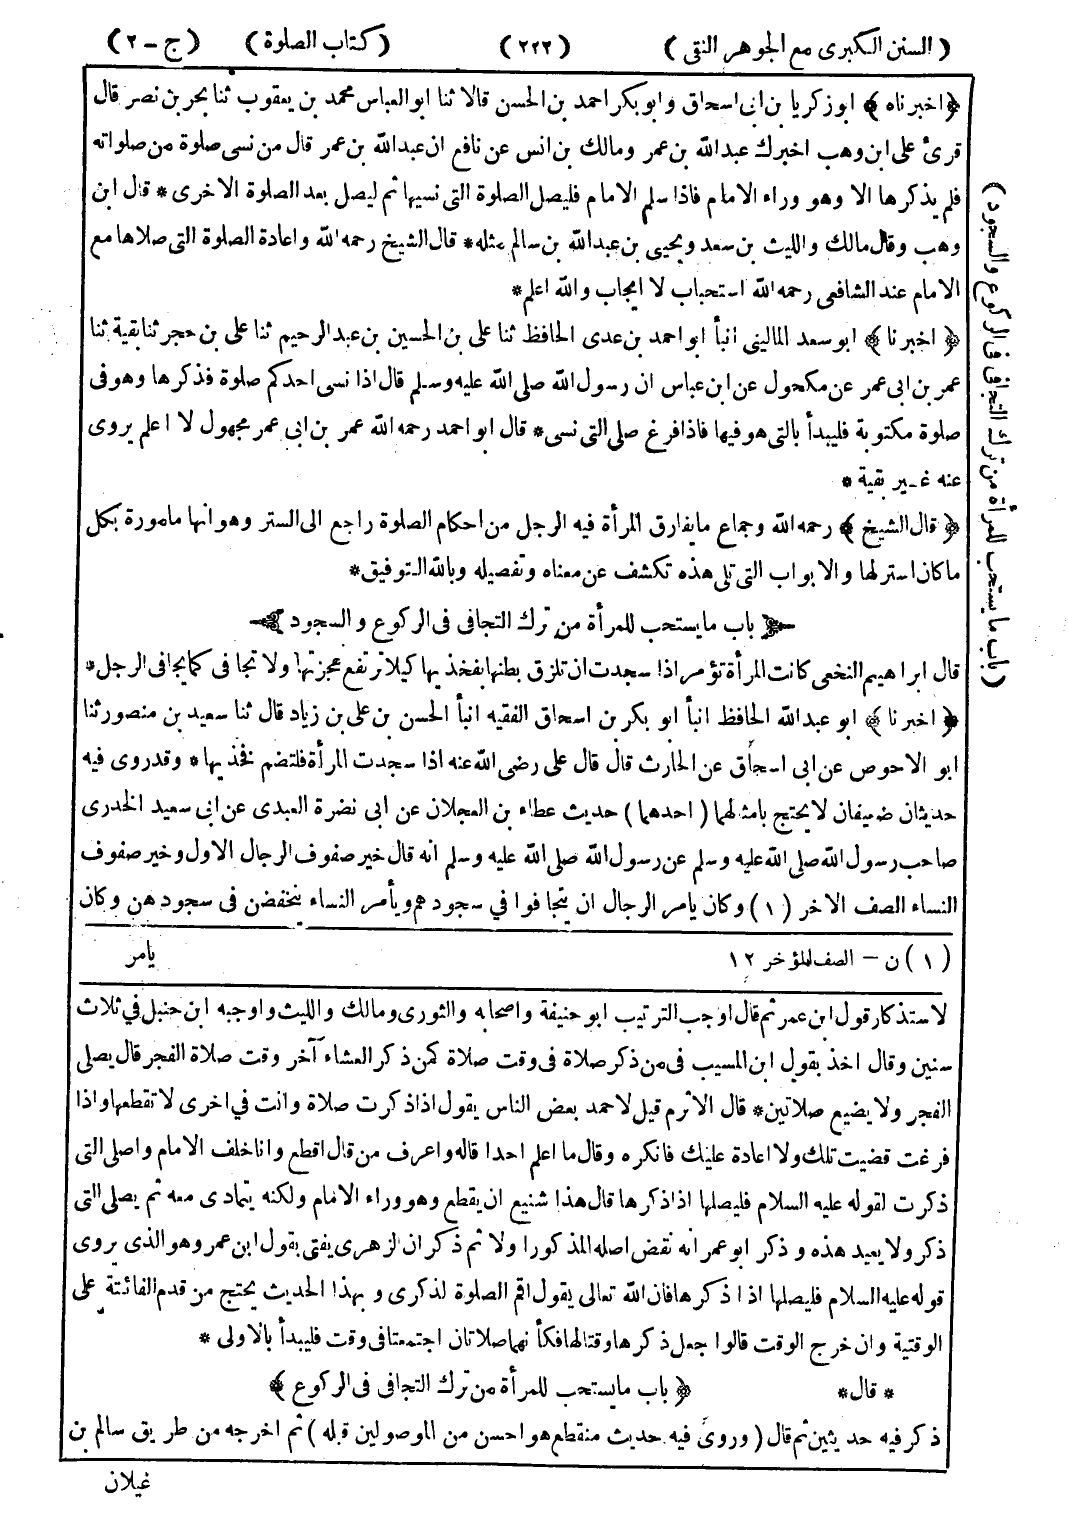 (السنن الكبرى مع الجوهر النقى) (٢٢٢) (كتاب الصلوة) (ج-٢)
﴿اخبرناه﴾ ابو زكريا بن ابى اسحاق وابو بكر احمد بن الحسن قالا ثنا ابو العباس محمد بن يعقوب ثنا بحر بن نصر قال
قرئ على ابن وهب اخبرك عبد الله بن عمر ومالك بن انس عن نافع ان عبد الله بن عمر قال من نسى صلوة من صلواته
فلم يذكرها الا وهو وراء الامام فاذا سلم الامام فليصل الصلوة التى نسيها ثم ليصل بعد الصلوة الاخرى * قال ابن
وهب وقال مالك والليث بن سعد ويحيى بن عبد الله بن سالم مثله * قال الشيخ رحمه الله واعادة الصلوة التى صلاها مع
الامام عند الشافعى رحمه الله استحباب لا ايجاب والله اعلم *
﴿اخبرنا﴾ ابو سعد المالينى انبأ ابو احمد بن عدى الحافظ ثنا على بن الحسين بن عبد الرحيم ثنا على بن حجر ثنا بقية ثنا
عمر بن ابى عمر عن مكحول عن ابن عباس ان رسول الله صلى الله عليه وسلم قال اذا نسى احدكم صلوة فذكرها وهو فى
صلوة مكتوبة فليبدأ بالتى هو فيها فاذا فرغ صلى التى نسى * قال ابو احمد رحمه الله عمر بن ابى عمر مجهول لا اعلم يروى
عنه غير بقية *
﴿قال الشيخ﴾ رحمه الله وجماع ما يفارق المرأة فيه الرجل من احكام الصلوة راجع الى الستر وهو انها مامورة بكل
ما كان استر لها والابواب التى تلى هذه تكشف عن معناه وتفصيله وبالله التوفيق *
باب ما يستحب للمرأة من ترك التجافى فى الركوع والسجود
قال ابراهيم النخعى كانت المرأة تؤمر اذا سجدت ان تلزق بطنها بفخذيها كيلا ترتفع عجزتها ولا تجافى كما يجافى الرجل *
﴿اخبرنا﴾ ابو عبد الله الحافظ انبأ ابو بكر بن اسحاق الفقيه انبأ الحسن بن على بن زياد قال ثنا سعيد بن منصور ثنا
ابو الاحوص عن ابى اسحاق عن الحارث قال قال على رضى الله عنه اذا سجدت المرأة فلتضم فخذيها * وقد روى فيه
حديثان ضعيفان لا يحتج بامثالهما (احدهما) حديث عطاء بن العجلان عن ابى نضرة العبدى عن ابى سعيد الخدرى
صاحب رسول الله صلى الله عليه وسلم عن رسول الله صلى الله عليه وسلم انه قال خير صفوف الرجال الاول وخير صفوف
النساء الصف الاخر (١) وكان يامر الرجال ان يتجافوا في سجودهم ويأمر النساء ينخفضن فى سجودهن وكان
(١) ن - الصف المؤخر ١٢ يامر
لاستذكار قول ابن عمر ثم قال اوجب الترتيب ابو حنيفة واصحابه والثورى ومالك والليث واوجبه ابن حنبل في ثلاث
سنين وقال اخذ بقول ابن المسيب فى من ذكر صلاة فى وقت صلاة كمن ذكر العشاء آخر وقت صلاة الفجر قال يصلى
الفجر ولا يضيع صلاتين * قال الاثرم قيل لاحمد بعض الناس يقول اذا ذكرت صلاة وانت في اخرى لا تقطعها واذا
فرغت قضيت تلك ولا اعادة عليك فانكره وقال ما اعلم احدا قاله واعرف من قال اقطع وانا خلف الامام واصلى التى
ذكرت لقوله عليه السلام فليصلها اذا ذكرها قال هذا شنيع ان يقطع وهو وراء الامام ولكنه يتمادى معه ثم يصلى التى
ذكر ولا يعيد هذه وذكر ابو عمر انه نقض اصله المذكور اولا ثم ذكر ان الزهرى يفتى بقول ابن عمر وهو الذى يروى
قوله عليه السلام فليصلها اذا ذكرها فان الله تعالى يقول اقم الصلوة لذكرى وبهذا الحديث يحتج من قدم الفائتة على
الوقتية وان خرج الوقت قالوا جعل ذكرها وقتا لها فكأنهما صلاتان اجتمعتا فى وقت فليبدأ بالاولى *
* قال * ﴿باب ما يستحب للمرأة من ترك التجافى فى الركوع﴾
ذكر فيه حديثين ثم قال (وروى فيه حديث منقطع هو احسن من الموصولين قبله) ثم اخرجه من طريق سالم بن
غيلان
(باب ما يستحب للمرأة من ترك التجافى فى الركوع والسجود)